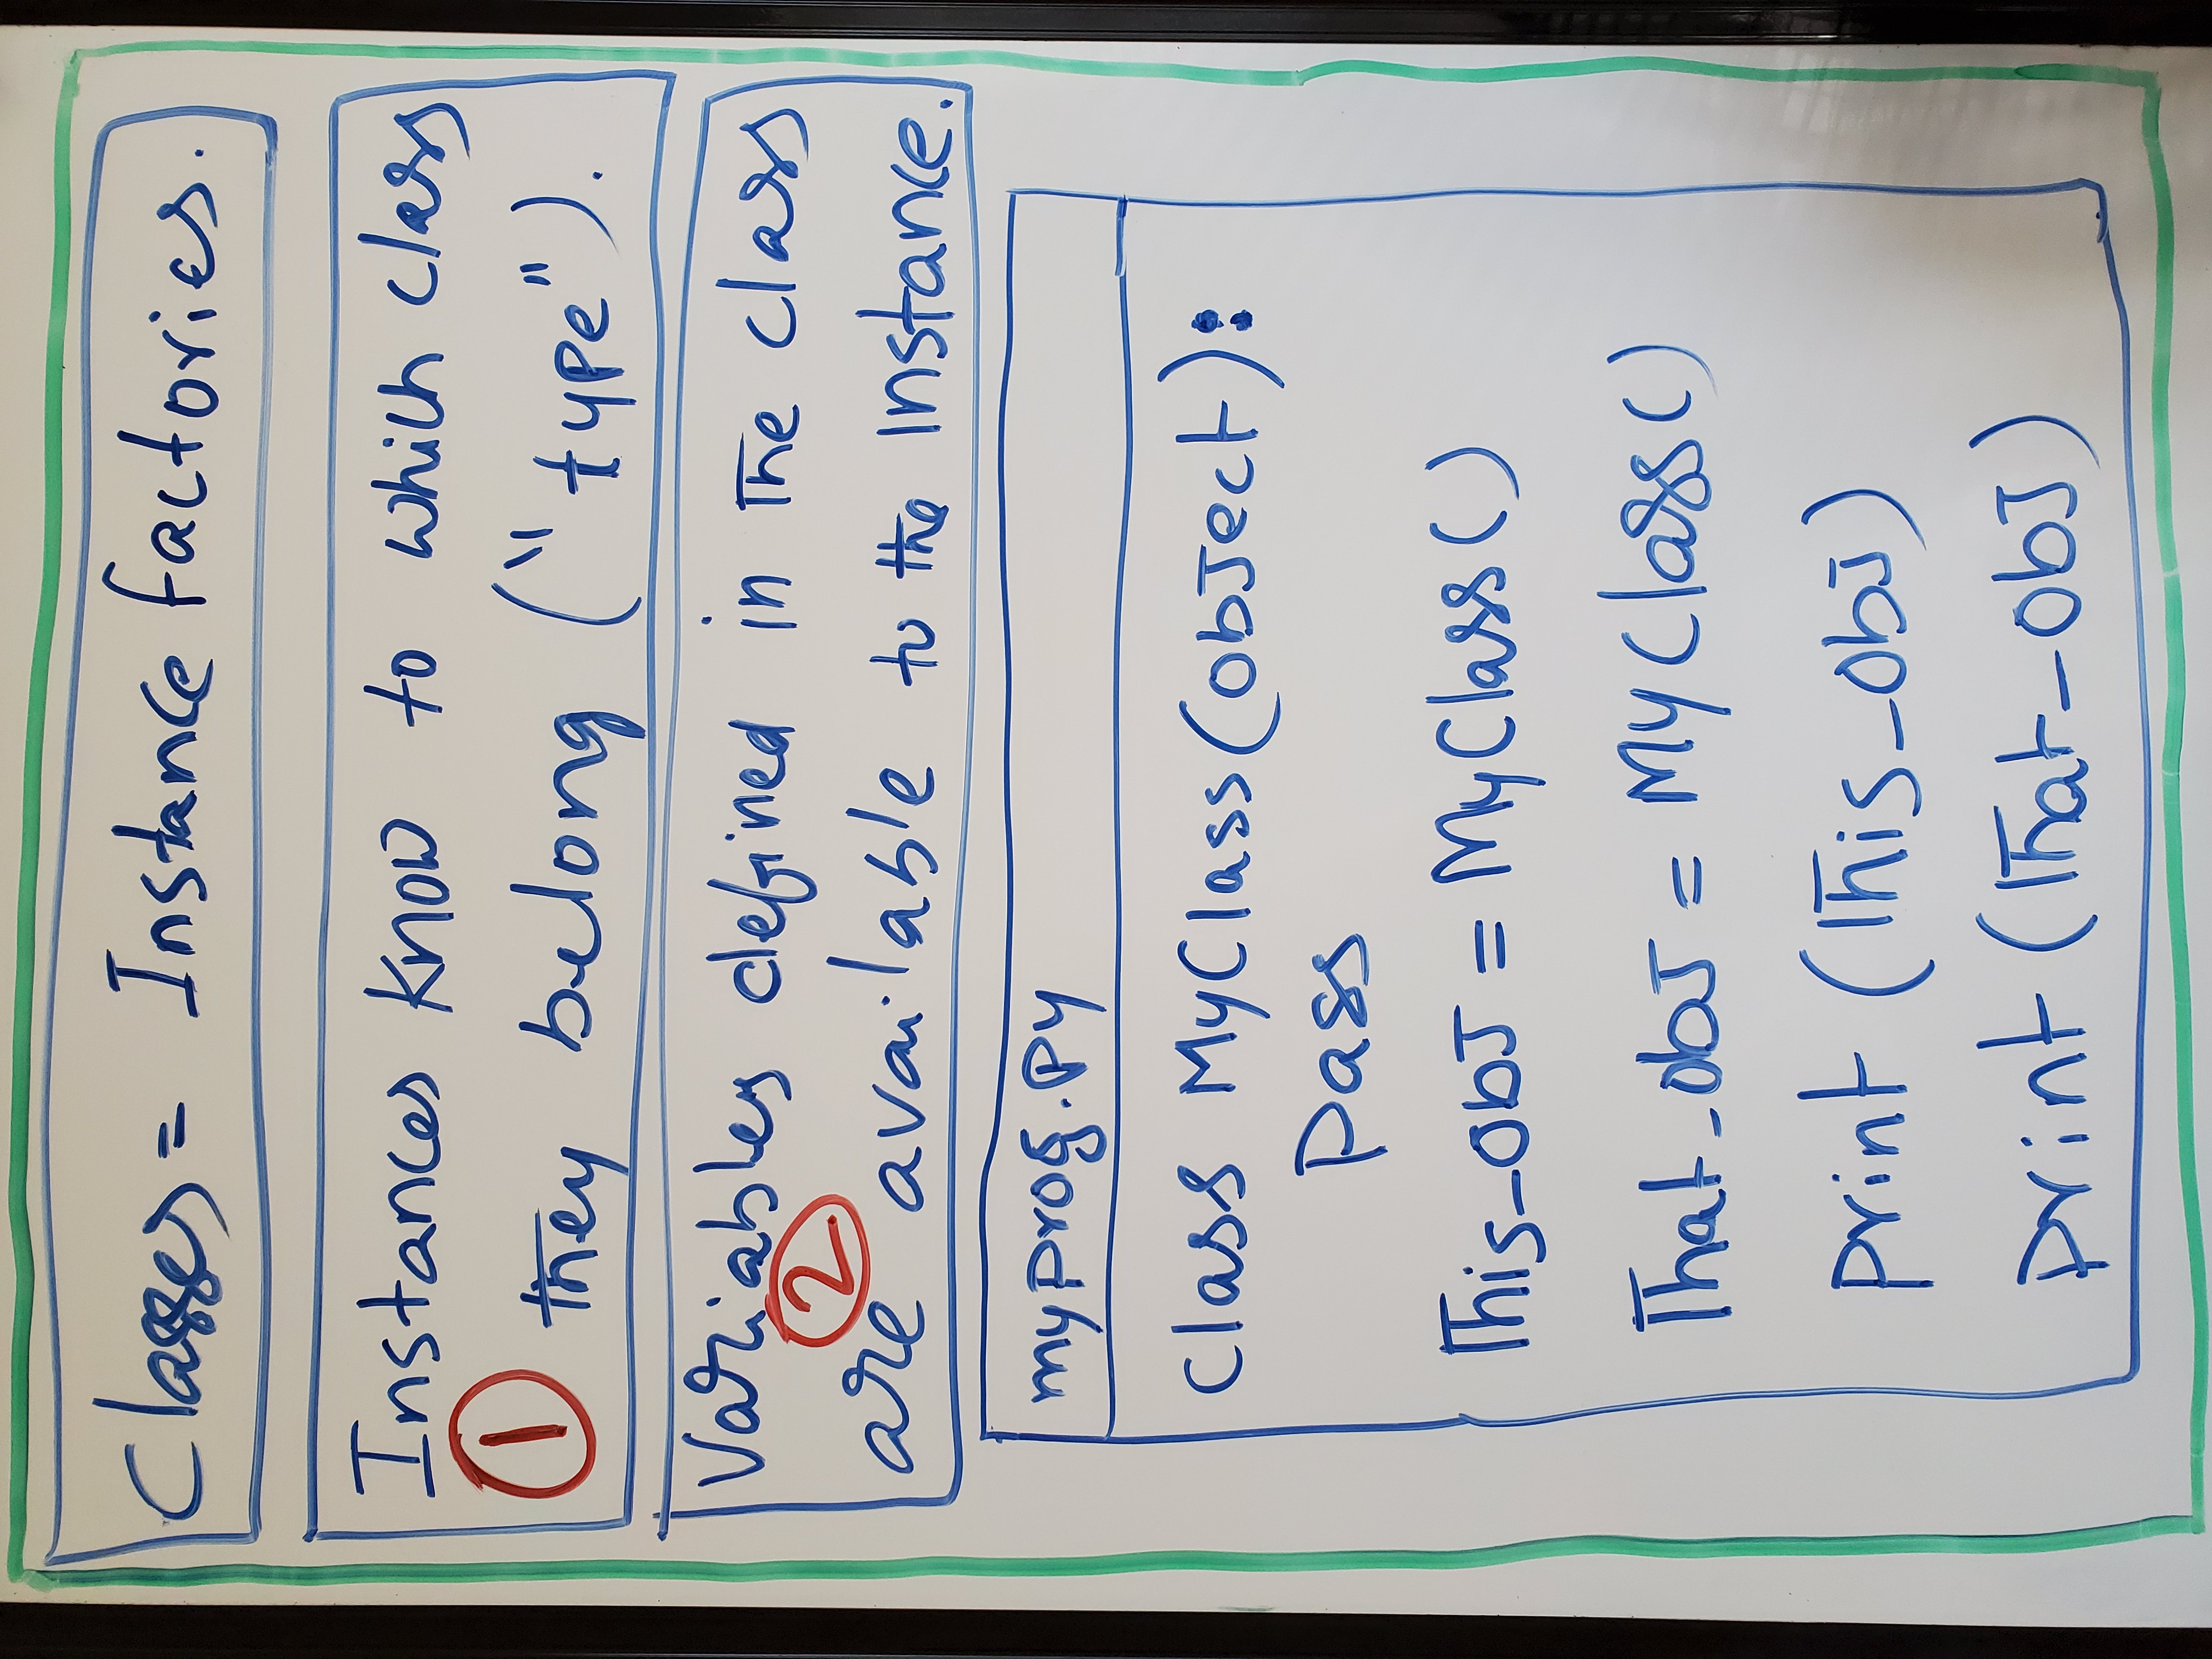 Classes = Instance factories.
Instances know to which class
1
they belong ("type").
Variables defined in the class
2
are available to the instance.
myprog.py
class MyClass(object):
pass
This_obj = MyClass()
That_obj = MyClass()
print (This_obj)
print (That_obj)